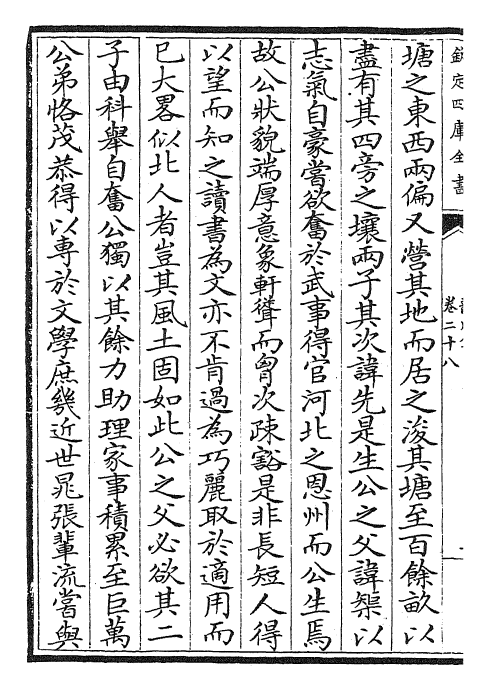 欽定四庫全書
卷二十八
塘之東西兩偏又營其地而居之浚其塘至百餘畝以
盡有其四旁之壤兩子其次諱先是生公之父諱槩以
志氣自豪嘗欲奮於武事得官河北之恩州而公生焉
故公狀貌端厚意象軒聳而胷次疎豁是非長短人得
以望而知之讀書為文亦不肯過為巧麗取於適用而
已大畧似北人者豈其風土固如此公之父必欲其二
子由科舉自奮公獨以其餘力助理家事積累至巨萬
公弟恪茂恭得以専於文學庶幾近世晁張輩流嘗與